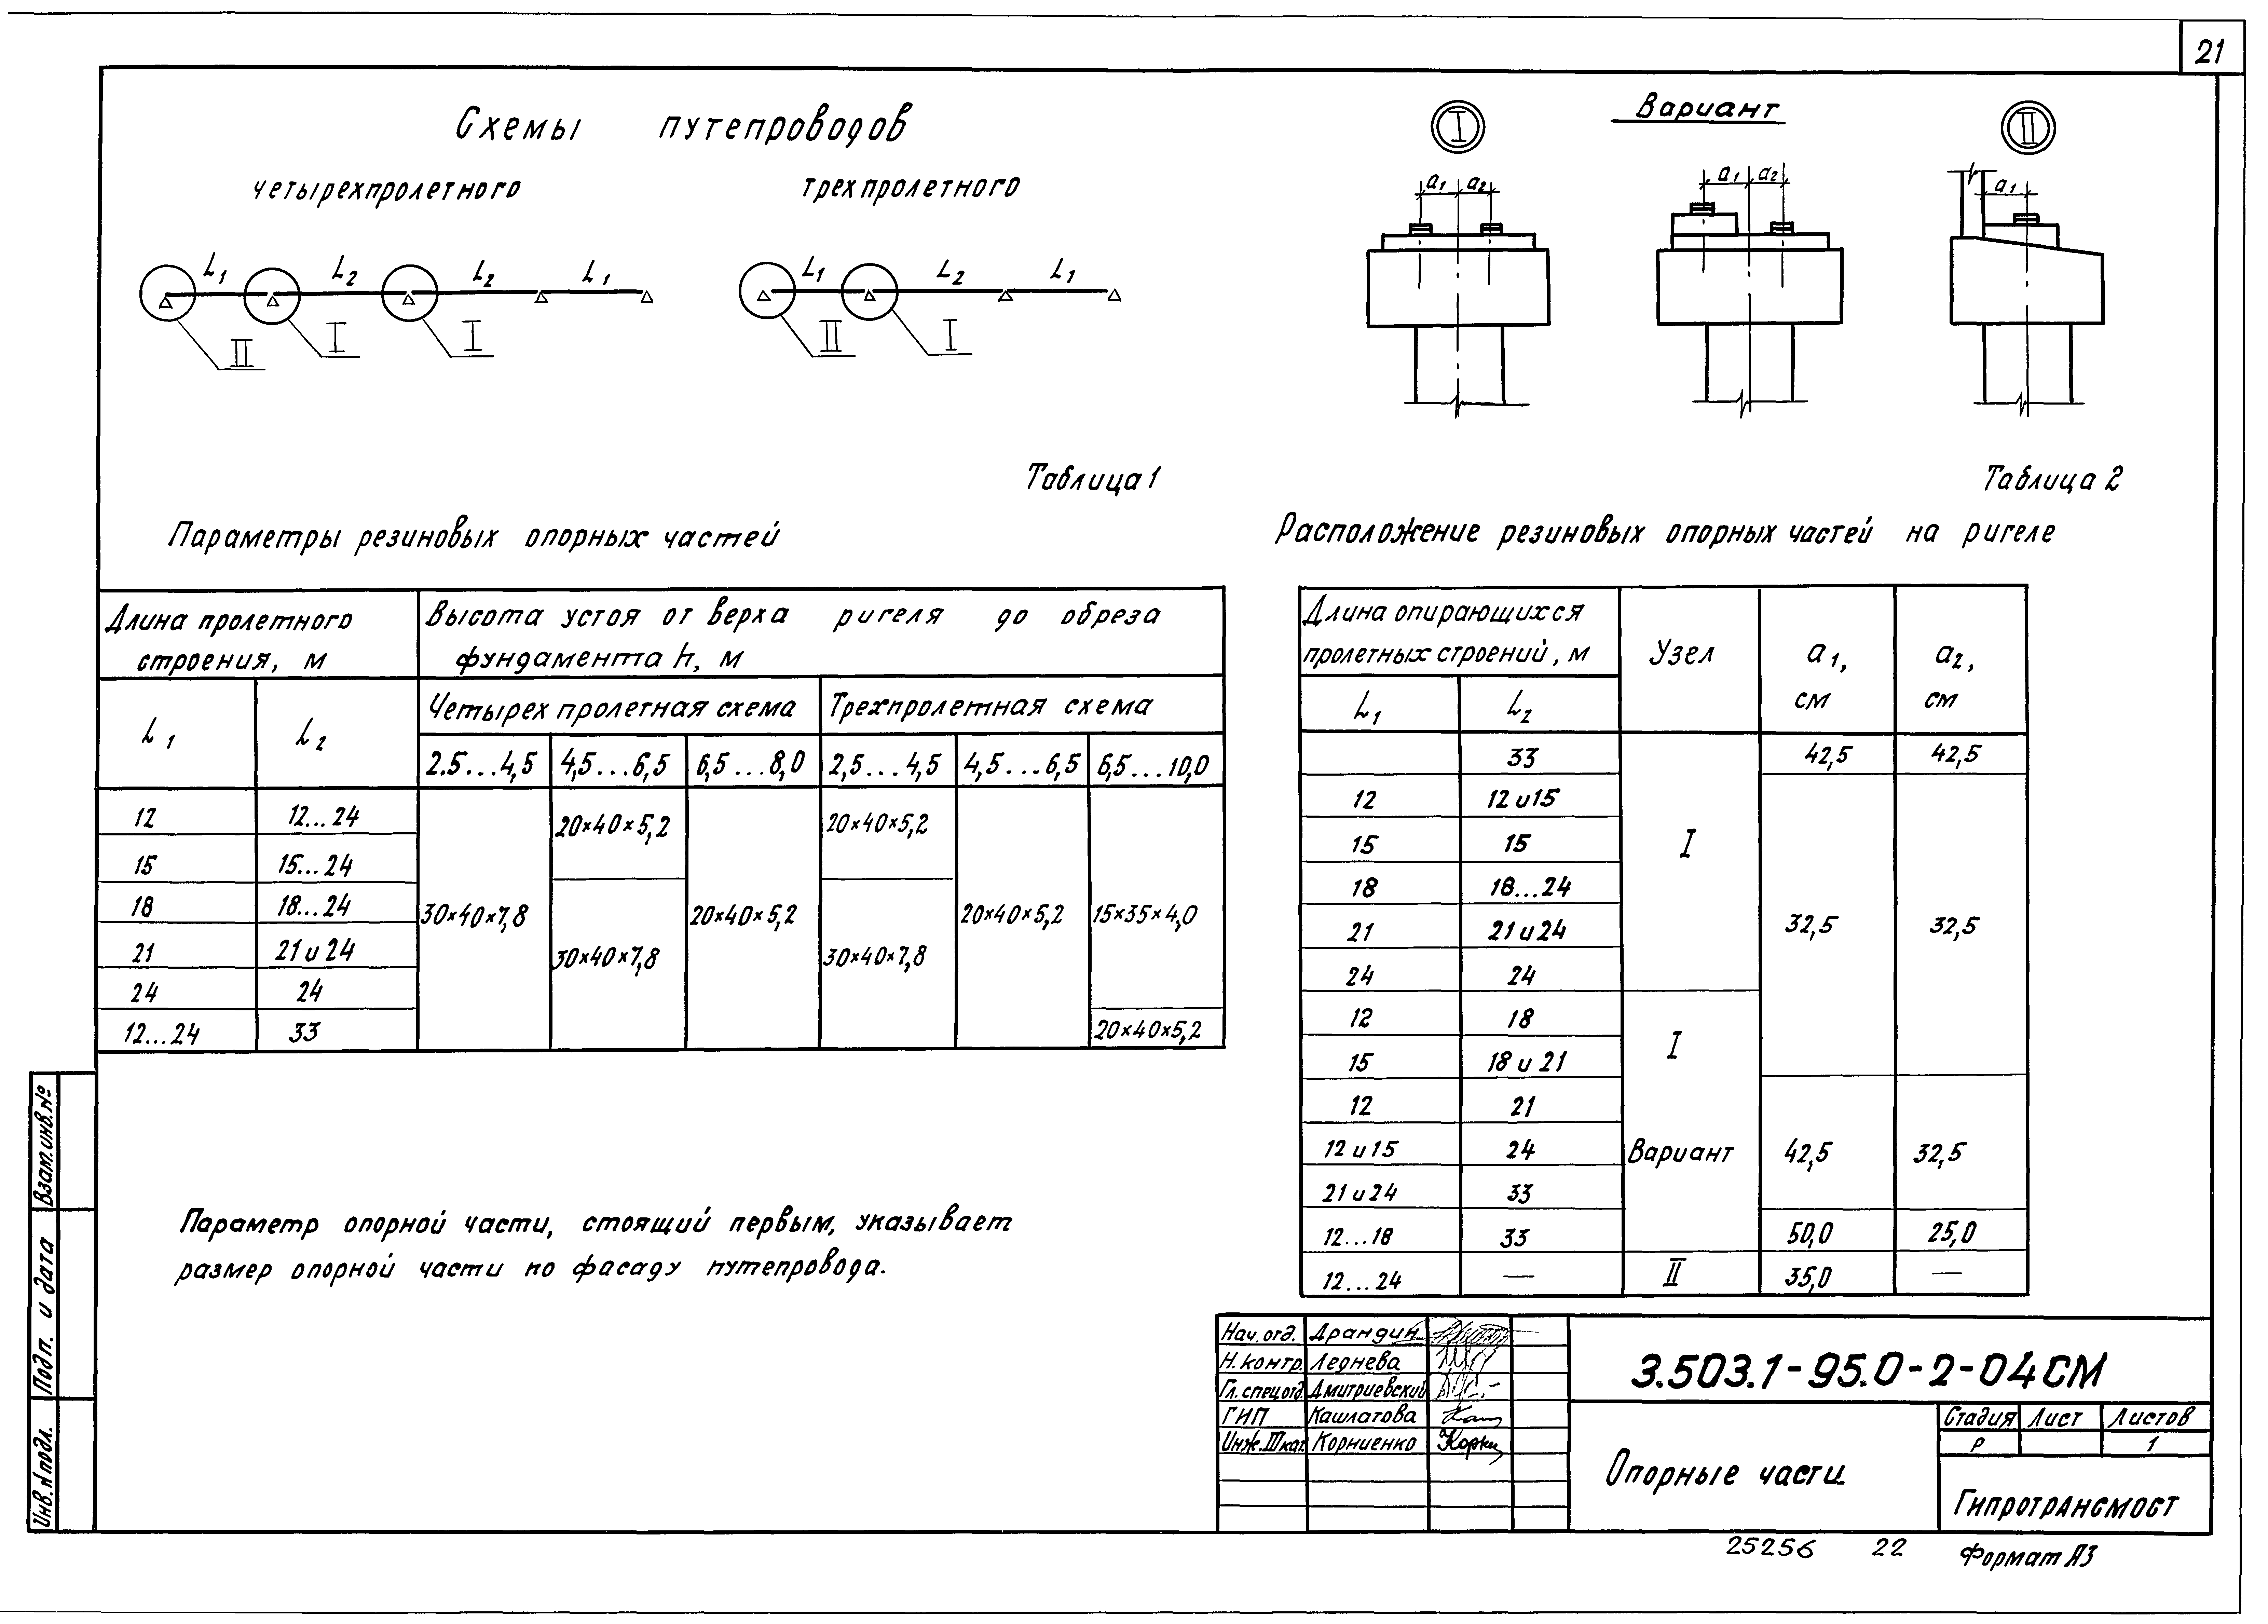 21
Схемы путепроводов
четырехпролетного
трехпролетного
L1 L2 L2 L1
II I I
L1 L2 L1
II I
I
Вариант
II
a1 a2
a1 a2
a1
Таблица 1
Параметры резиновых опорных частей
Длина пролетного строения, м
Высота устоя от верха ригеля до обреза фундамента h, м
L1 L2
Четырехпролетная схема
Трехпролетная схема
2.5...4,5 4,5...6,5 6,5...8,0 2,5...4,5 4,5...6,5 6,5...10,0
12 12...24
20×40×5,2 20×40×5,2
15 15...24
18 18...24
30×40×7,8 20×40×5,2 20×40×5,2 15×35×4,0
21 21 и 24
30×40×7,8 30×40×7,8
24 24
12...24 33
20×40×5,2
Параметр опорной части, стоящий первым, указывает
размер опорной части по фасаду путепровода.
Таблица 2
Расположение резиновых опорных частей на ригеле
Длина опирающихся
пролетных строений, м
Узел
a1, см
a2, см
L1 L2
33 42,5 42,5
12 12 и 15
15 15 I
18 18...24
21 21 и 24 32,5 32,5
24 24
12 18
I
15 18 и 21
12 21
12 и 15 24 Вариант 42,5 32,5
21 и 24 33
12...18 33 50,0 25,0
12...24 — II 35,0 —
Взам. инв. №
Подп. и дата
Инв. № подл.
Нач. отд. Арандин
Н. контр. Леднева
Гл. спец отд. Дмитриевский
ГИП Кашлатова
Инж. II кат. Корниенко
3.503.1-95.0-2-04СМ
Опорные части
Стадия Лист Листов
Р 1
Гипротрансмост
25256 22
Формат А3